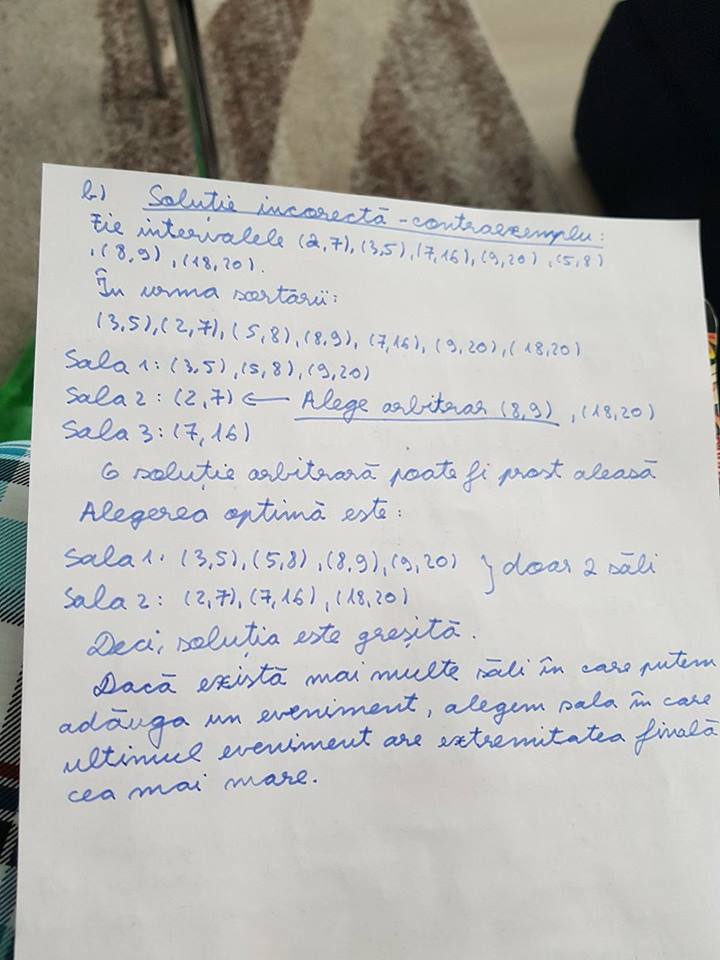 b) Soluție incorectă - contraexemplu:
Fie intervalele (2,7),(3,5),(7,16),(9,20),(5,8)
,(8,9),(18,20).
În urma sortării:
(3,5),(2,7),(5,8),(8,9),(7,16),(9,20),(18,20)
Sala 1: (3,5),(5,8),(9,20)
Sala 2: (2,7) ← Alege arbitrar (8,9), (18,20)
Sala 3: (7,16)
O soluție arbitrară poate fi prost aleasă
Alegerea optimă este:
Sala 1: (3,5),(5,8),(8,9),(9,20) } doar 2 săli
Sala 2: (2,7),(7,16),(18,20)
Deci, soluția este greșită.
Dacă există mai multe săli în care putem
adăuga un eveniment, alegem sala în care
ultimul eveniment are extremitatea finală
cea mai mare.